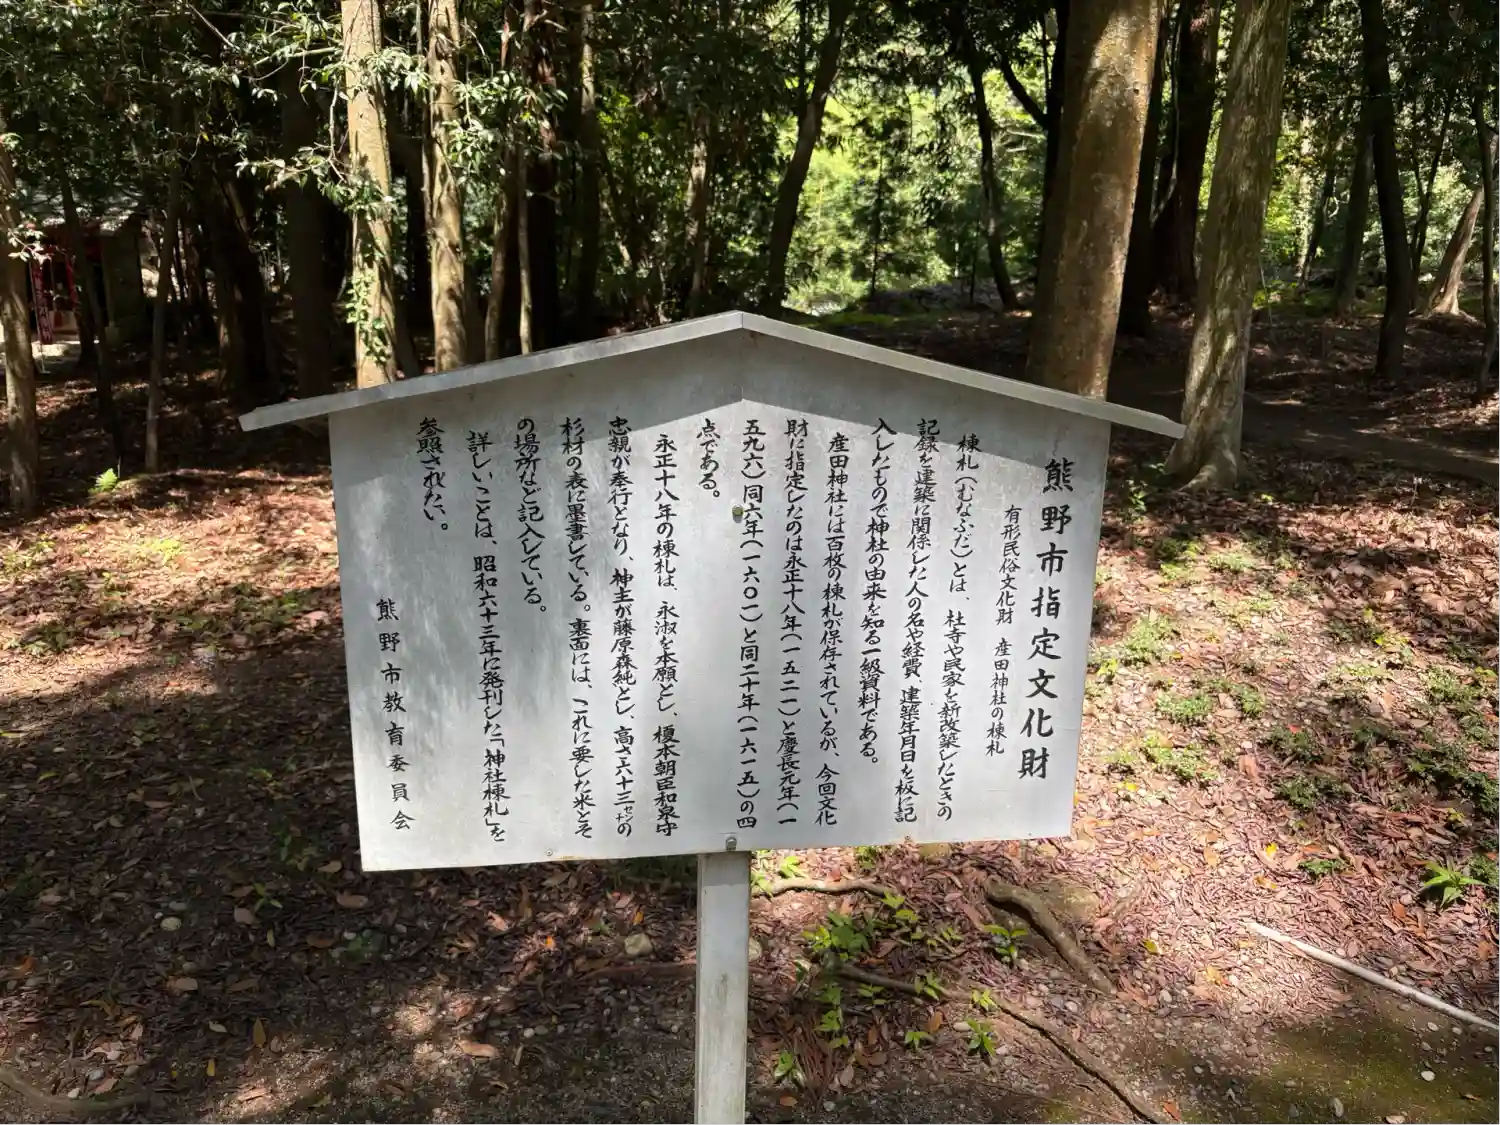 熊野市指定文化財
有形民俗文化財 産田神社の棟札
棟札(むなふだ)とは、社寺や民家を新改築したときの
記録を建築に関係した人の名や経費、建築年月日を板に記
入したもので神社の由来を知る一級資料である。
産田神社には百枚の棟札が保存されているが、今回文化
財に指定したのは永正十八年(一五二一)と慶長元年(一
五九六)同六年(一六〇一)と同二十年(一六一五)の四
点である。
永正十八年の棟札は、永淑を本願とし、榎本朝臣和泉守
忠親が奉行となり、神主が藤原森純とし、高さ六十三センチの
杉材の表に墨書している。裏面には、これに要した米とそ
の場所など記入している。
詳しいことは、昭和六十三年に発刊した「神社棟札」を
参照されたい。
熊野市教育委員会